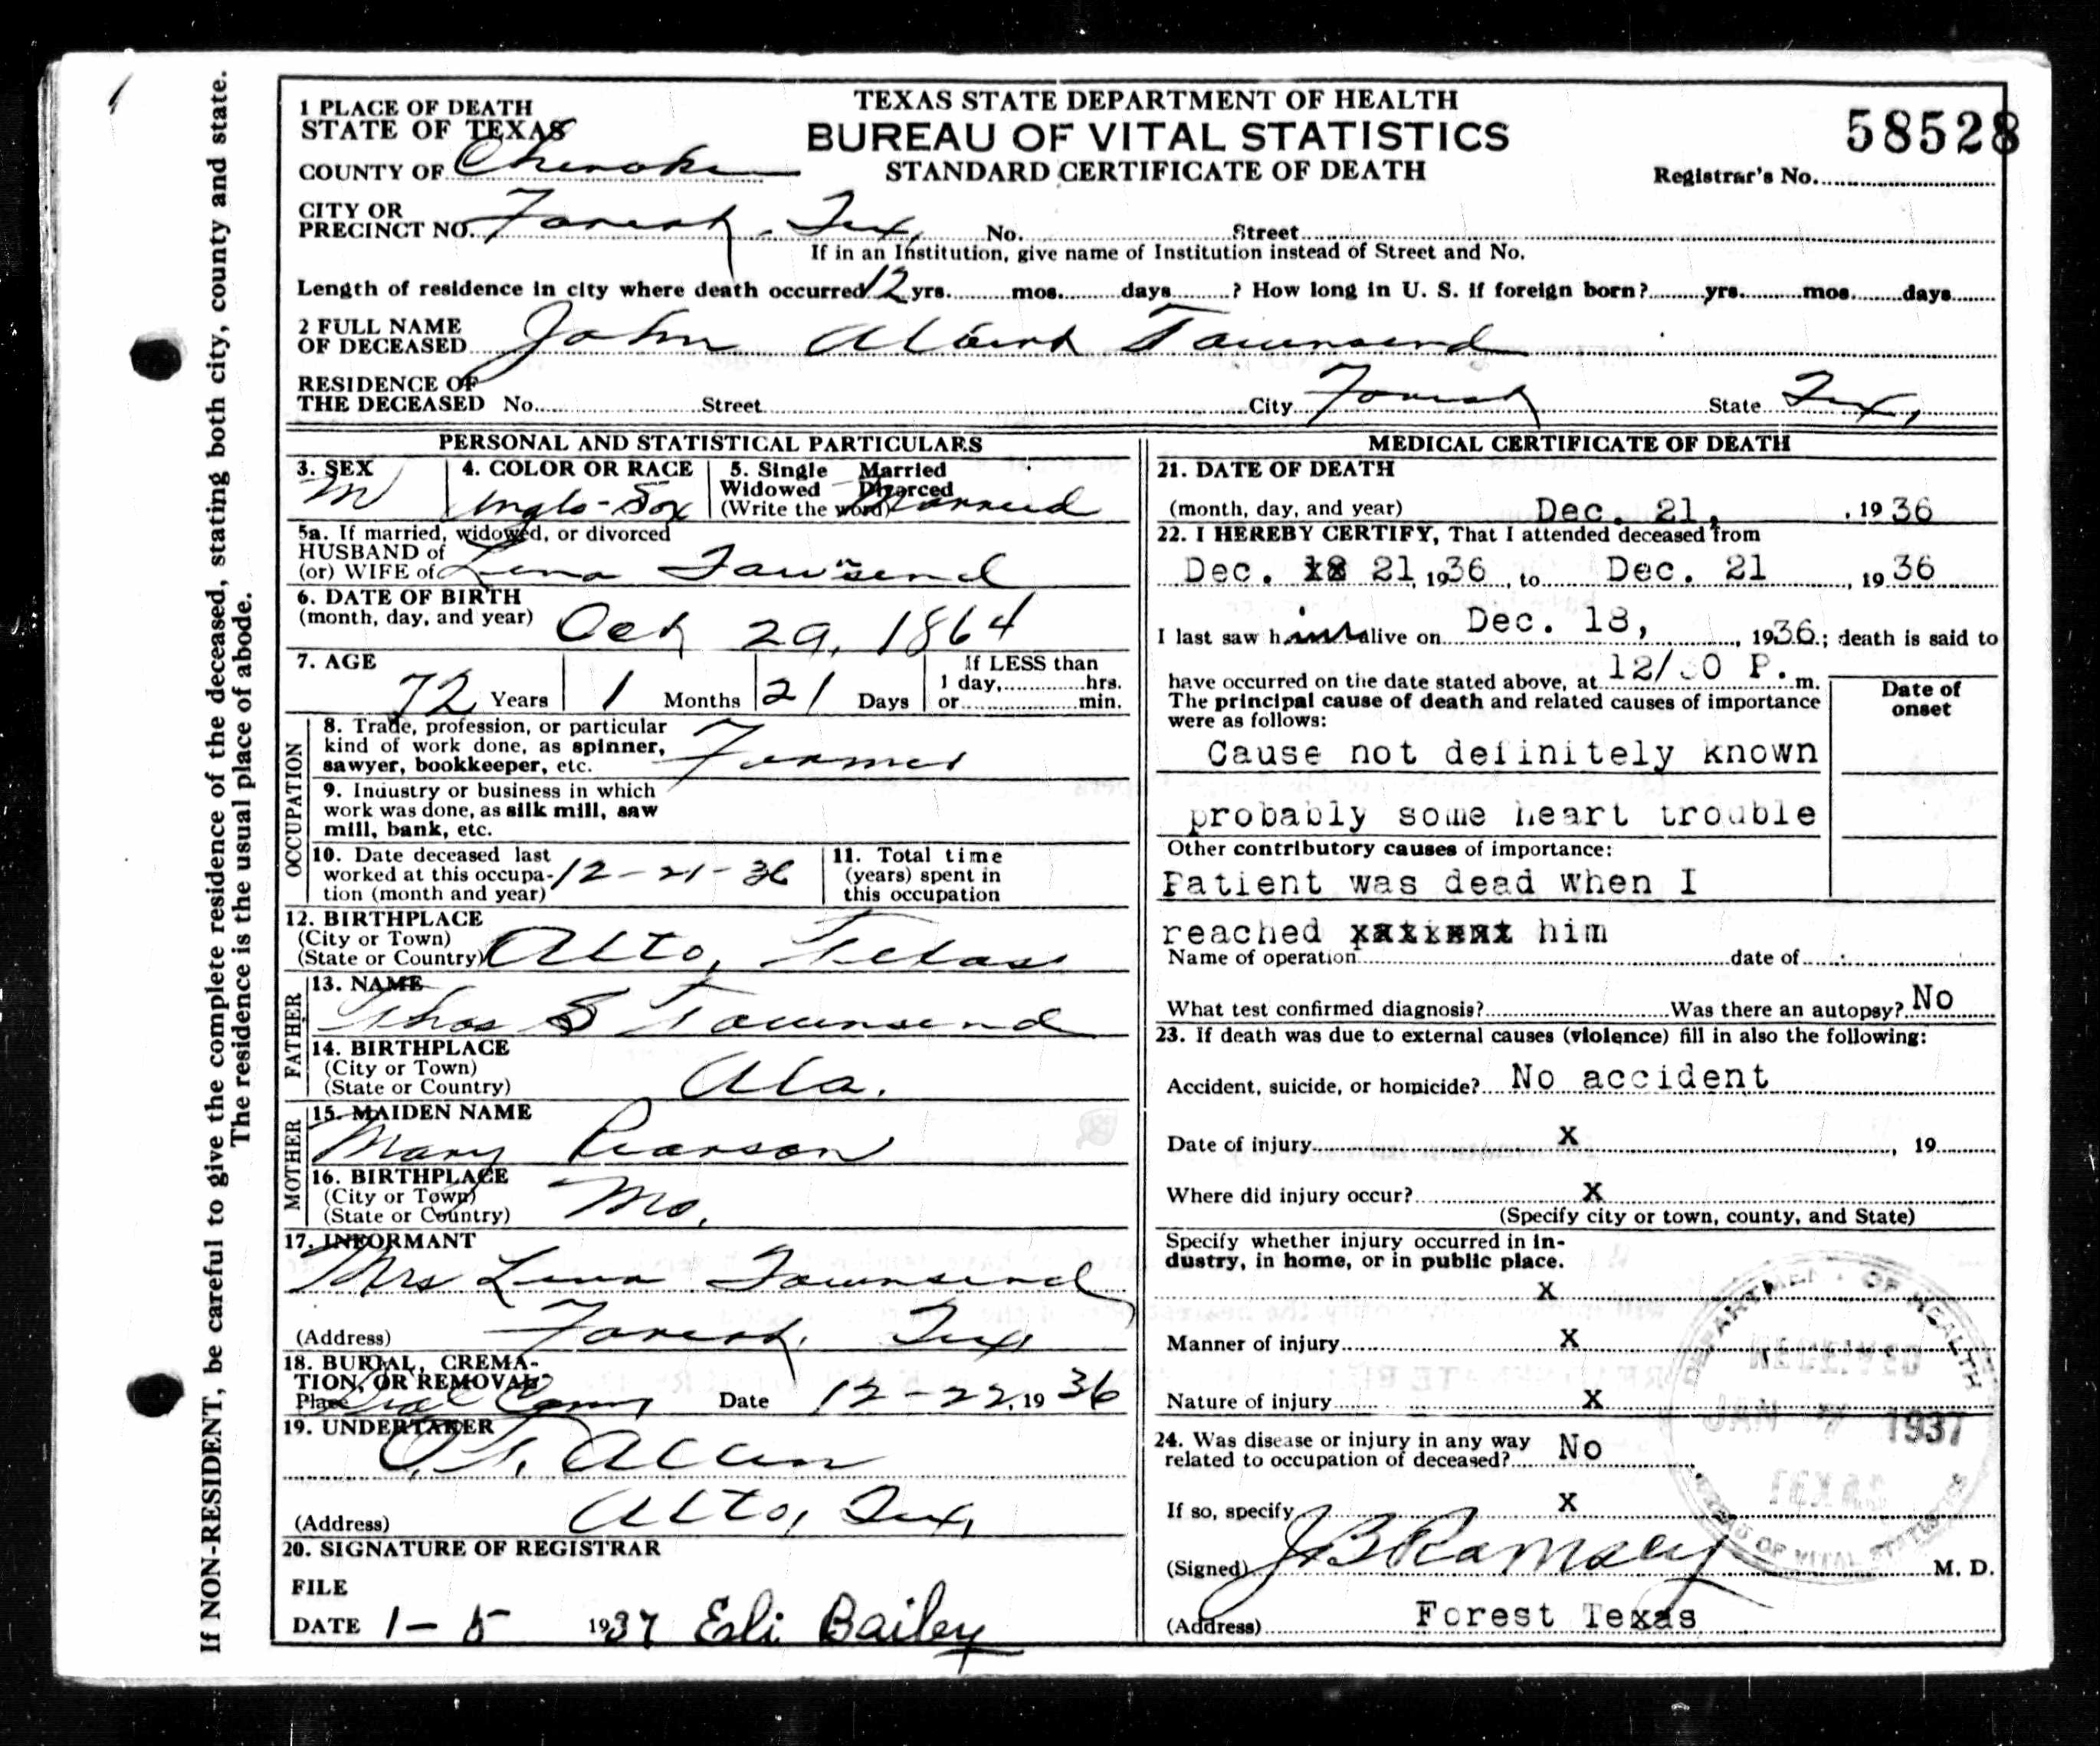 If NON-RESIDENT, be careful to give the complete residence of the deceased, stating both city, county and state.
The residence is the usual place of abode.
TEXAS STATE DEPARTMENT OF HEALTH
BUREAU OF VITAL STATISTICS
STANDARD CERTIFICATE OF DEATH
58528
Registrar's No.
1 PLACE OF DEATH
STATE OF TEXAS
COUNTY OF Cherokee
CITY OR
PRECINCT NO. Forest, Tex, No. Street
If in an Institution, give name of Institution instead of Street and No.
Length of residence in city where death occurred 12 yrs. mos. days ? How long in U. S. if foreign born? yrs. mos. days
2 FULL NAME
OF DECEASED John Albert Townsend
RESIDENCE OF
THE DECEASED No. Street City Forest State Tex,
PERSONAL AND STATISTICAL PARTICULARS
3. SEX
M
4. COLOR OR RACE
Anglo-Sax
5. Single Married
Widowed Divorced
(Write the word) Married
5a. If married, widowed, or divorced
HUSBAND of
(or) WIFE of Lena Townsend
6. DATE OF BIRTH
(month, day, and year) Oct 29, 1864
7. AGE
72 Years 1 Months 21 Days
If LESS than
1 day, hrs.
or min.
OCCUPATION
8. Trade, profession, or particular
kind of work done, as spinner,
sawyer, bookkeeper, etc. Farmer
9. Industry or business in which
work was done, as silk mill, saw
mill, bank, etc.
10. Date deceased last
worked at this occupa-
tion (month and year) 12-21-36
11. Total time
(years) spent in
this occupation
12. BIRTHPLACE
(City or Town)
(State or Country) Alto, Texas
FATHER
13. NAME
Thos S Townsend
14. BIRTHPLACE
(City or Town)
(State or Country) Ala.
MOTHER
15. MAIDEN NAME
Mary Pearson
16. BIRTHPLACE
(City or Town)
(State or Country) Mo.
17. INFORMANT
Mrs Lena Townsend
(Address) Forest, Tex,
18. BURIAL, CREMA-
TION, OR REMOVAL
Place Date 12-22, 1936
19. UNDERTAKER
O. T. Allen
(Address) Alto, Tex,
20. SIGNATURE OF REGISTRAR
FILE
DATE 1-5 1937 Esli Bailey
MEDICAL CERTIFICATE OF DEATH
21. DATE OF DEATH
(month, day, and year) Dec. 21, , 1936
22. I HEREBY CERTIFY, That I attended deceased from
Dec. 21, 1936, to Dec. 21, 1936
I last saw him alive on Dec. 18, , 1936; death is said to
have occurred on the date stated above, at P. m.
The principal cause of death and related causes of importance
were as follows:
Date of
onset
Cause not definitely known
probably some heart trouble
Other contributory causes of importance:
Patient was dead when I
reached him
Name of operation date of
What test confirmed diagnosis? Was there an autopsy? No
23. If death was due to external causes (violence) fill in also the following:
Accident, suicide, or homicide? No accident
Date of injury X , 19
Where did injury occur? X
(Specify city or town, county, and State)
Specify whether injury occurred in in-
dustry, in home, or in public place.
X
Manner of injury X
Nature of injury X
24. Was disease or injury in any way
related to occupation of deceased? No
If so, specify X
(Signed) J B Ramsey M. D.
(Address) Forest Texas
DEPARTMENT OF HEALTH
RECEIVED
JAN 7 1937
BUREAU OF VITAL STATISTICS